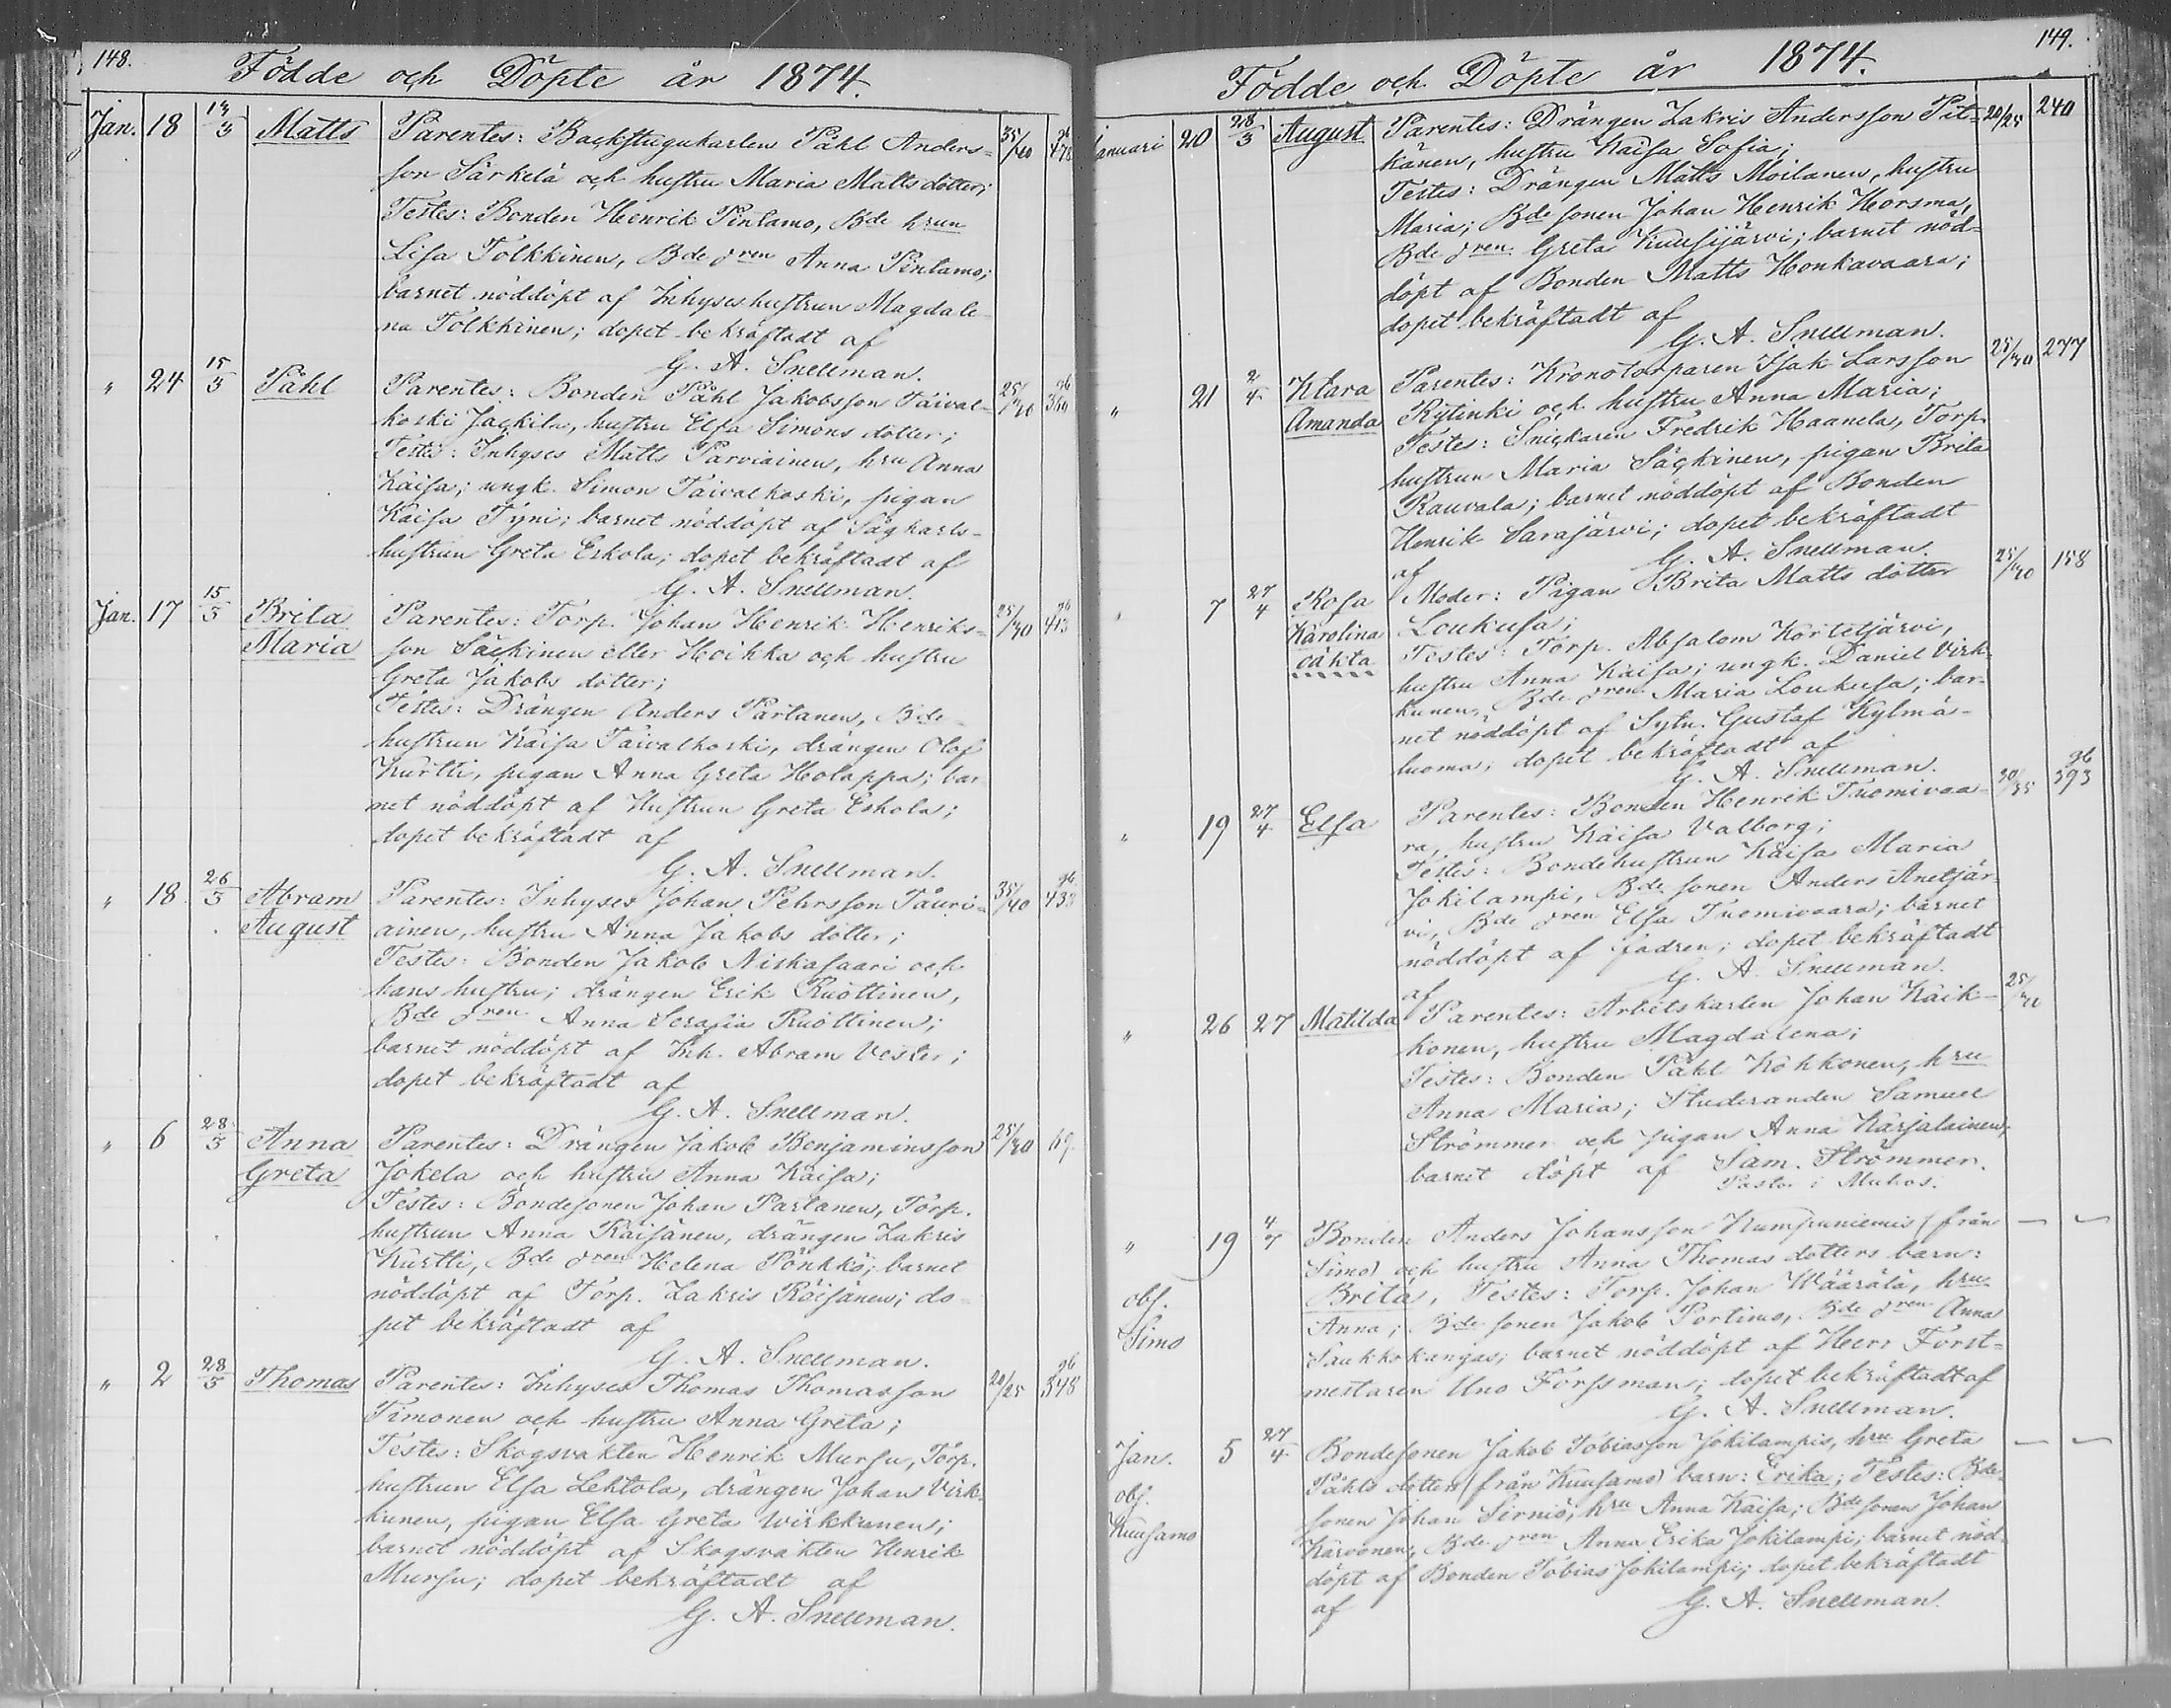 148.
Födde och Döpte år 1874.
Jan. 18 Matts Parentes: Backstugukarlen Påhl Anders- 35/40
son Särkelä och hustru Maria Matts dotter;
Testes: Bonden Henrik Pintamo, Bde hrun
Lisa Tolkkinen, Bde dren Anna Pintamo;
barnet nöddöpt af Inhyseshustrun Magdale-
na Tolkkinen; dopet bekräftadt af
G. A. Snellman.
" 24 15/3 Påhl Parentes: Bonden Påhl Jakobsson Taival-
koski Jackila, hustru Elsa Simons dotter;
Testes: Inhyses Matts Parviainen, hru Anna
Kaisa; ungk. Simon Taivalkoski, pigan
Kaisa Tyni; barnet nöddöpt af Sågkarls-
hustrun Greta Eskola; dopet bekräftadt af
G. A. Snellman.
Jan. 17 15/3 Brita Parentes: Torp. Johan Henrik Henriks-
Maria son Säckinen eller Hoikka och hustru
Greta Jakobs dotter;
Testes: Drängen Anders Partanen, Bde-
hustrun Kaisa Taivalkoski, drängen Olof
Kurtti, pigan Anna Greta Holappa; bar-
net nöddöpt af Hustrun Greta Eskola;
dopet bekräftadt af
G. A. Snellman.
" 18 26/3 Abram Parentes: Inhyses Johan Pehrsson Tauri- 35/40 433
August ainen, hustru Anna Jakobs dotter;
Testes: Bonden Jakob Niskasaari och
hans hustru; drängen Erik Ruottinen,
Bde dren Anna Serafia Ruottinen;
barnet nöddöpt af Inh. Abram Vester;
dopet bekräftadt af
G. A. Snellman.
" 6 28/3 Anna Parentes: Drängen Jakob Benjaminsson 25/30
Greta Jokela och hustru Anna Kaisa;
Testes: Bondesonen Johan Partanen, Torp.
hustrun Anna Räisänen, drängen Zakris
Kurtti, Bde dren Helena Pönkkö; barnet
nöddöpt af Torp. Zakris Räisänen; do-
pet bekräftadt af
G. A. Snellman.
" 2 28/3 Thomas Parentes: Inhyses Thomas Thomasson 20/25 348
Timonen och hustru Anna Greta;
Testes: Skogsvakten Henrik Mursu, Torp.
hustrun Elsa Lehtola, drängen Johan Virk-
kunen, pigan Elsa Greta Wirkkunen;
barnet nöddöpt af Skogsvakten Henrik
Mursu; dopet bekräftadt af
G. A. Snellman.
149.
Födde och Döpte år 1874.
Januari 20 28/3 August Parentes: Drängen Zakris Andersson Pit- 20/25 240
känen, hustru Kaisa Sofia;
Testes: Drängen Matts Moilanen, hustru
Maria; Bde sonen Johan Henrik Horsma,
Bde dren Greta Kuusijärvi; barnet nöd-
döpt af Bonden Matts Honkavaara;
dopet bekräftadt af
G. A. Snellman.
" 21 2/4 Klara Parentes: Kronotorparen Isak Larsson 277
Amanda Rytinki och hustru Anna Maria;
Testes: Snickaren Fredrik Haanela, Torp.
hustrun Maria Säckinen, pigan Brita
Rauvala; barnet nöddöpt af Bonden
Henrik Sarajärvi; dopet bekräftadt
af G. A. Snellman.
" 7 27/4 Rosa Moder: Pigan Brita Matts dotter 158
Karolina Loukusa;
oäkta Testes: Torp. Absalom Kortetjärvi,
hustru Anna Kaisa; ungk. Daniel Virk-
kunen, Bde dren Maria Loukusa; bar-
net nöddöpt af Sytn. Gustaf Kylmä-
luoma; dopet bekräftadt af
G. A. Snellman.
" 19 27/4 Elsa Parentes: Bonden Henrik Tuomivaa- 30/35 393
ra, hustru Kaisa Valborg;
Testes: Bondehustrun Kaisa Maria
Jokilampi, Bde sonen Anders Anetjär-
vi, Bde dren Elsa Tuomivaara; barnet
nöddöpt af fadren; dopet bekräftadt
af G. A. Snellman.
" 26 27 Matilda Parentes: Arbetskarlen Johan Kaik-
konen, hustru Magdalena;
Testes: Bonden Påhl Kokkonen, hru
Anna Maria; Studeranden Samuel
Strömmer och pigan Anna Karjalainen;
barnet döpt af Sam. Strömmer.
Pastor i Muhos.
" 19 4/7 Bonden Anders Johansson Kumpuniemis (från — —
Simo) och hustru Anna Thomas dotters barn:
obs. Brita, Testes: Torp. Johan Wäärälä, hru
Simo Anna; Bde sonen Jakob Portimo, Bde dren Anna
Saukkokangas; barnet nöddöpt af Herr Forst-
mestaren Uno Forssman; dopet bekräftadt af
G. A. Snellman.
Jan. 5 27/4 Bondesonen Jakob Tobiasson Jokilampis, hru Greta — —
Påhls dotters (från Kuusamo) barn: Erika; Testes: Bde-
obs. sonen Johan Sirniö, hru Anna Kaisa; Bde sonen Johan
Kuusamo Karvonen, Bde dren Anna Erika Jokilampi; barnet nöd-
döpt af Bonden Tobias Jokilampi; dopet bekräftadt
af G. A. Snellman.